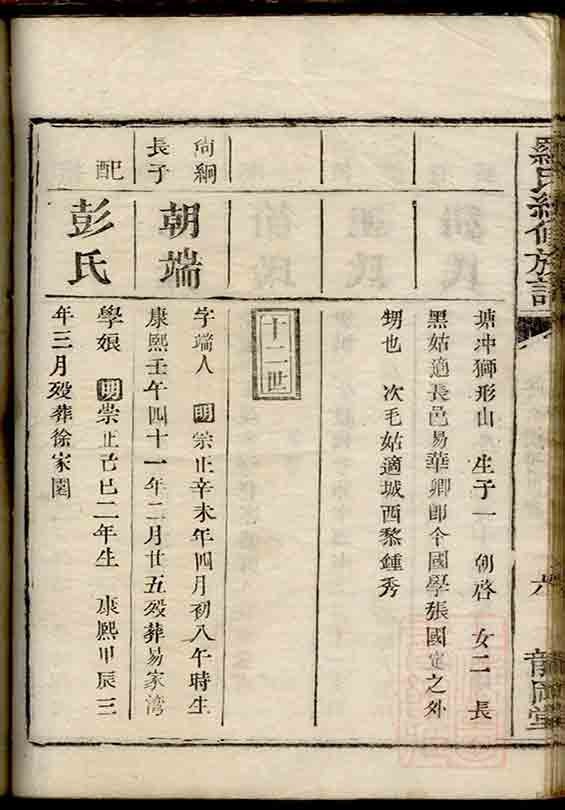 羅氏續修族譜
六
龍岡堂
塘冲獅形山 生子一 朝啓 女二 長
黑姑適長邑易華卿卽令國學張國定之外
甥也 次毛姑適城西黎鍾秀
十二世
尙綱長子
朝端
字端人 明崇正辛未年四月初八午時生
康熙壬午四十一年二月廿五殁葬易家湾
配
彭氏
學娘 明崇正己巳二年生 康熙甲辰三
年三月殁葬徐家園